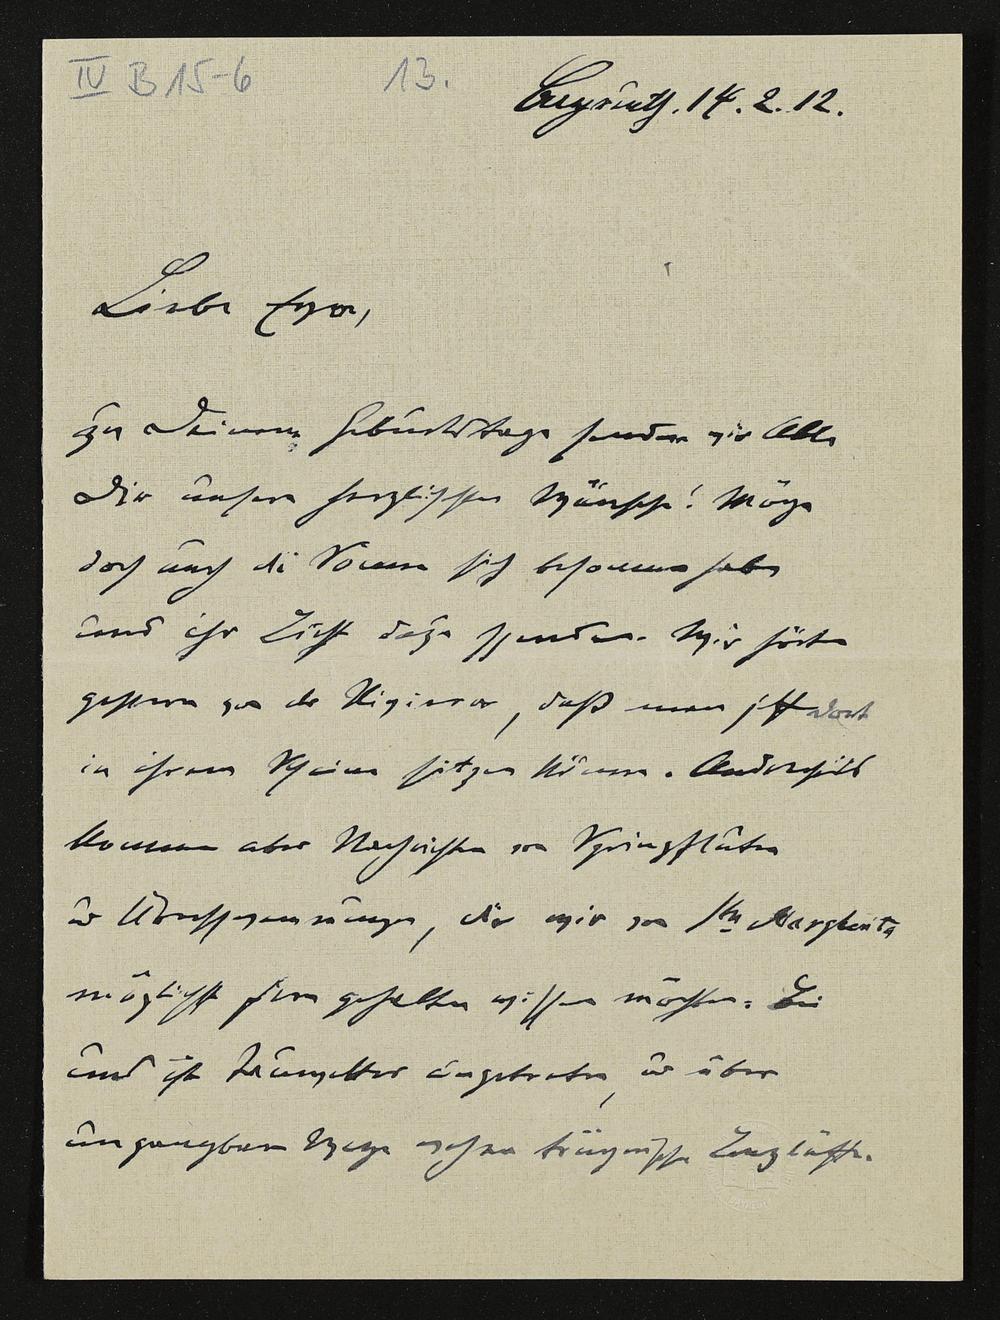 IV B 15-6 13.
Bayreuth. 14. 2. 12.
Liebe Eva,
zu Deinem Geburtstage senden wir Alle
Dir unsere herzlichsten Wünsche! Möge
doch auch die Sonne sich besonnen haben
und ihr Licht dazu spenden. Wir hörten
gestern von der Riviera, daß man jetzt dort
in ihrem Scheine sitzen könne. Anderseits
kommen aber Nachrichten von Springfluten
u Überschwemmungen, die wir von Sta Margherita
möglichst fern gehalten wissen möchten. Bei
uns ist Tauwetter eingetreten, u über
ungangbare Wege wehen trügerische Lenzlüfte.